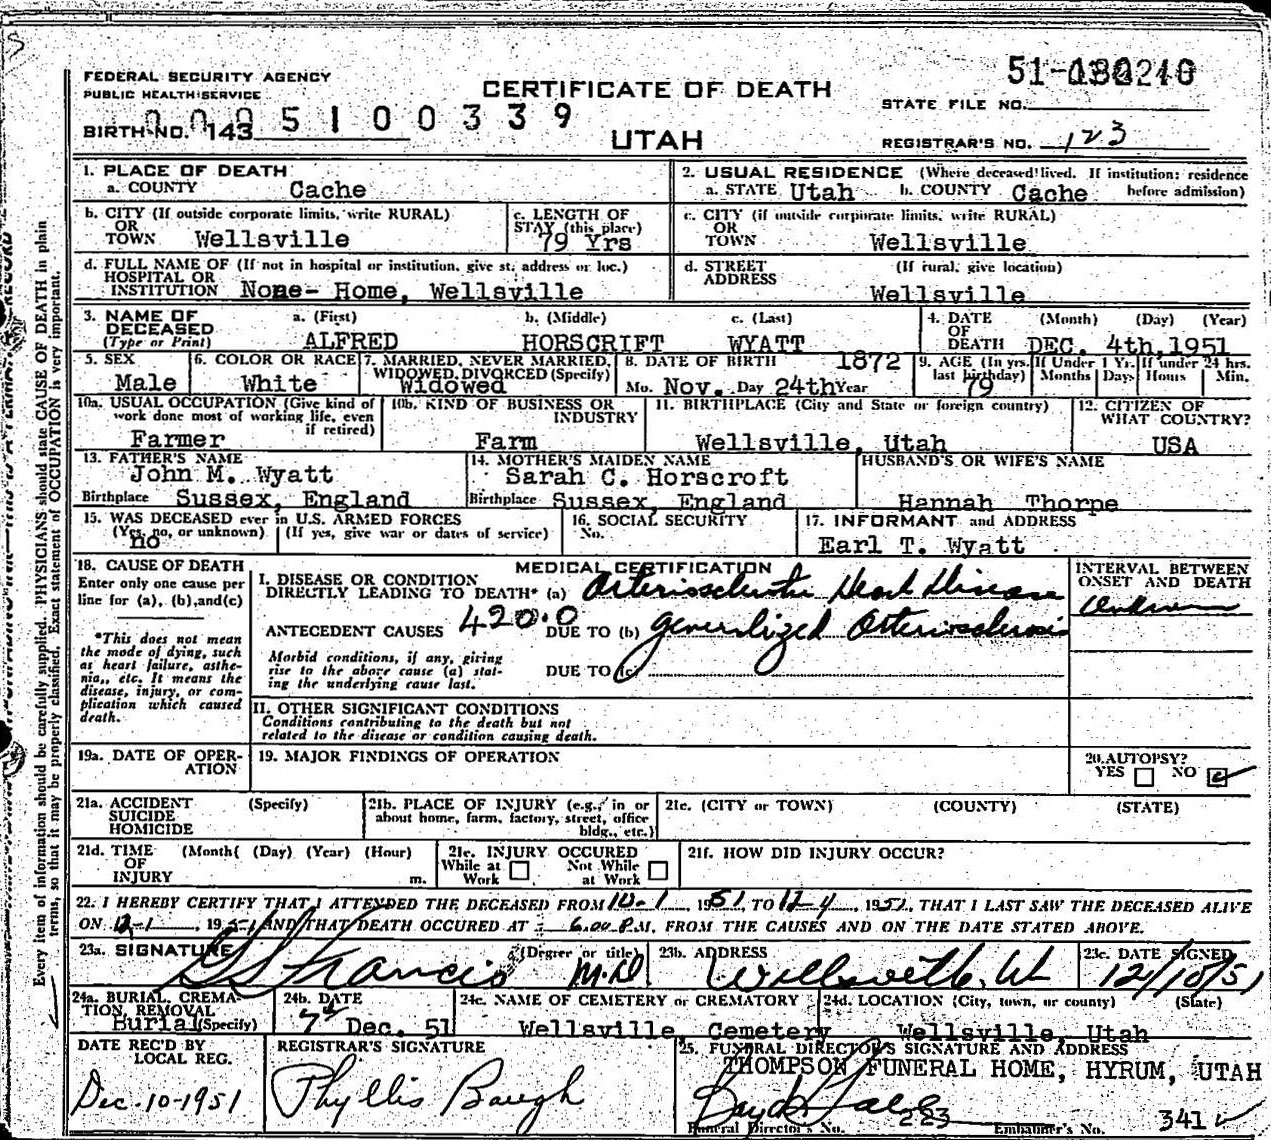 51-
FEDERAL SECURITY AGENCY
PUBLIC HEALTH SERVICE
CERTIFICATE OF DEATH
STATE FILE NO.
0005100339
BIRTH NO. 143
UTAH
REGISTRAR'S NO. 123
1. PLACE OF DEATH
a. COUNTY Cache
2. USUAL RESIDENCE (Where deceased lived. If institution: residence before admission)
a. STATE Utah b. COUNTY Cache
b. CITY (If outside corporate limits, write RURAL)
OR
TOWN Wellsville
c. LENGTH OF
STAY (this place)
79 Yrs
c. CITY (if outside corporate limits, write RURAL)
OR
TOWN Wellsville
d. FULL NAME OF (If not in hospital or institution, give st. address or loc.)
HOSPITAL OR
INSTITUTION None- Home, Wellsville
d. STREET (If rural, give location)
ADDRESS
Wellsville
3. NAME OF
DECEASED
(Type or Print)
a. (First) b. (Middle) c. (Last)
ALFRED HORSCRIFT WYATT
4. DATE (Month) (Day) (Year)
OF
DEATH DEC. 4th, 1951
5. SEX
Male
6. COLOR OR RACE
White
7. MARRIED, NEVER MARRIED,
WIDOWED, DIVORCED (Specify)
Widowed
8. DATE OF BIRTH 1872
Mo. Nov. Day 24th Year
9. AGE (In yrs. last birthday)
79
If Under 1 Yr.
Months Days
If under 24 hrs.
Hours Min.
10a. USUAL OCCUPATION (Give kind of
work done most of working life, even
if retired)
Farmer
10b. KIND OF BUSINESS OR
INDUSTRY
Farm
11. BIRTHPLACE (City and State or foreign country)
Wellsville, Utah
12. CITIZEN OF
WHAT COUNTRY?
USA
13. FATHER'S NAME
John M. Wyatt
Birthplace Sussex, England
14. MOTHER'S MAIDEN NAME
Sarah C. Horscroft
Birthplace Sussex, England
HUSBAND'S OR WIFE'S NAME
Hannah Thorpe
15. WAS DECEASED ever in U.S. ARMED FORCES
(Yes, no, or unknown) (If yes, give war or dates of service)
no
16. SOCIAL SECURITY
No.
17. INFORMANT and ADDRESS
Earl T. Wyatt
18. CAUSE OF DEATH
Enter only one cause per
line for (a), (b), and (c)
*This does not mean
the mode of dying, such
as heart failure, asthe-
nia, etc. It means the
disease, injury, or com-
plication which caused
death.
MEDICAL CERTIFICATION
I. DISEASE OR CONDITION
DIRECTLY LEADING TO DEATH* (a) Arteriosclerotic Heart Disease
ANTECEDENT CAUSES 420.0 DUE TO (b) Generalized Arteriosclerosis
Morbid conditions, if any, giving
rise to the above cause (a) stat-
ing the underlying cause last.
DUE TO (c)
INTERVAL BETWEEN
ONSET AND DEATH
Unknown
II. OTHER SIGNIFICANT CONDITIONS
Conditions contributing to the death but not
related to the disease or condition causing death.
19a. DATE OF OPER-
ATION
19. MAJOR FINDINGS OF OPERATION
20. AUTOPSY?
YES NO
21a. ACCIDENT (Specify)
SUICIDE
HOMICIDE
21b. PLACE OF INJURY (e.g., in or
about home, farm, factory, street, office
bldg., etc.)
21c. (CITY or TOWN) (COUNTY) (STATE)
21d. TIME (Month( (Day) (Year) (Hour)
OF
INJURY m.
21e. INJURY OCCURED
While at Work Not While at Work
21f. HOW DID INJURY OCCUR?
22. I HEREBY CERTIFY THAT I ATTENDED THE DECEASED FROM 10-1, 1951 TO 12-4, 1951, THAT I LAST SAW THE DECEASED ALIVE
ON 12-1, 1951 AND THAT DEATH OCCURED AT 6:00 P.M, FROM THE CAUSES AND ON THE DATE STATED ABOVE.
23a. SIGNATURE (Degree or title)
Francis M.D.
23b. ADDRESS
Wellsville, Ut
23c. DATE SIGNED
12/10/51
24a. BURIAL, CREMA-
TION, REMOVAL
Burial (Specify)
24b. DATE
7th Dec. 51
24c. NAME OF CEMETERY or CREMATORY
Wellsville, Cemetery
24d. LOCATION (City, town, or county) (State)
Wellsville, Utah
DATE REC'D BY
LOCAL REG.
Dec-10-1951
REGISTRAR'S SIGNATURE
Phyllis Baugh
25. FUNERAL DIRECTOR'S SIGNATURE AND ADDRESS
THOMPSON FUNERAL HOME, HYRUM, UTAH
223 341
Funeral Director's No. Embalmer's No.
Every item of information should be carefully supplied. PHYSICIANS should state CAUSE OF DEATH in plain
terms, so that it may be properly classified. Exact statement of OCCUPATION is very important.